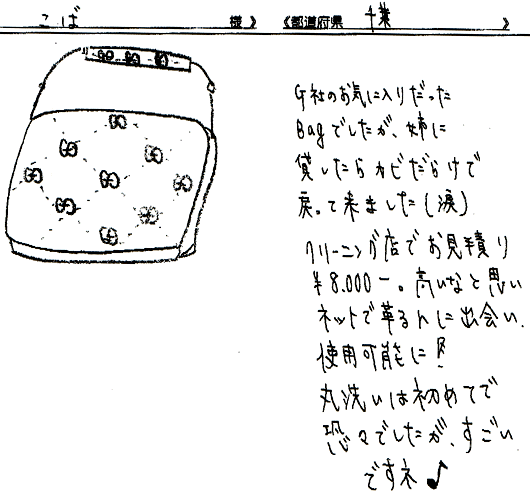 こば 様》 《都道府県 千葉 》
G社のお気に入りだった
Bagでしたが、姉に
貸したらカビだらけで
戻って来ました(涙)
クリーニング店でお見積り
¥8.000ー。高いなと思い
ネットで革るnに出会い、
使用可能に!
丸洗いは初めてで
恐々でしたが、すごい
ですネ♪